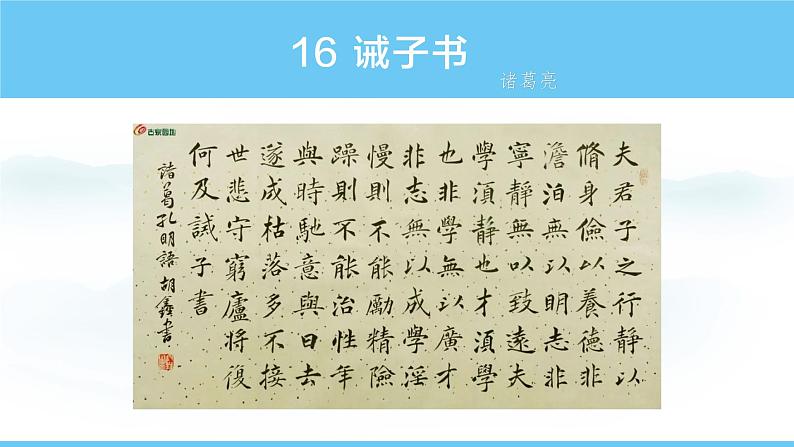 16 诫子书
诸葛亮
古泉园地
夫君子之行靜以
脩身儉以養德非
澹泊無以明志非
寧靜無以致遠夫
學湏靜也才湏學
也非學無以廣才
非志無以成學淫
慢則不能勵精險
躁則不能治性年
與時馳意與日去
遂成枯落多不接
世悲守窮廬將復
何及誡子書
諸葛孔明語 胡鑫書